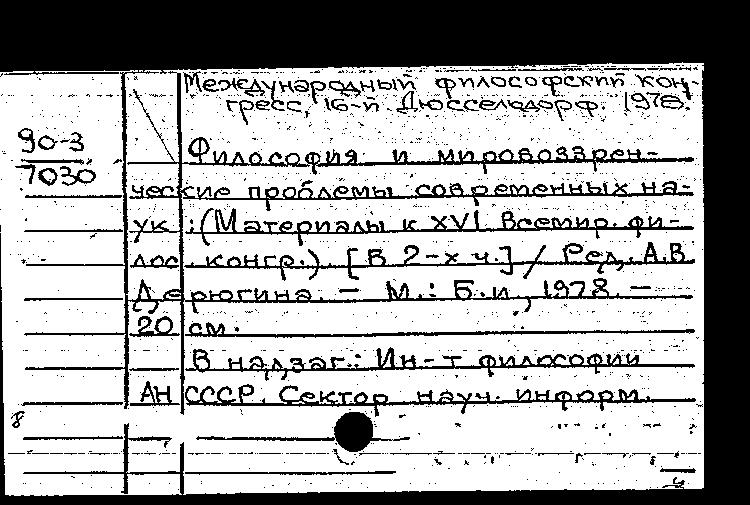 Международный философский кон-
гресс, 16-й. Дюссельдорф. 1978.
90-3
7030
Философия и мировоззрен-
ческие проблемы современных на-
ук :(Материалы к XVI Всемир. фи-
лос. конгр.). [В 2-х ч.] / Ред. А.В
Дерюгина. — М.: Б.и, 1978. —
20 см.
В надзаг.: Ин-т философии
АН СССР. Сектор науч. информ.
8